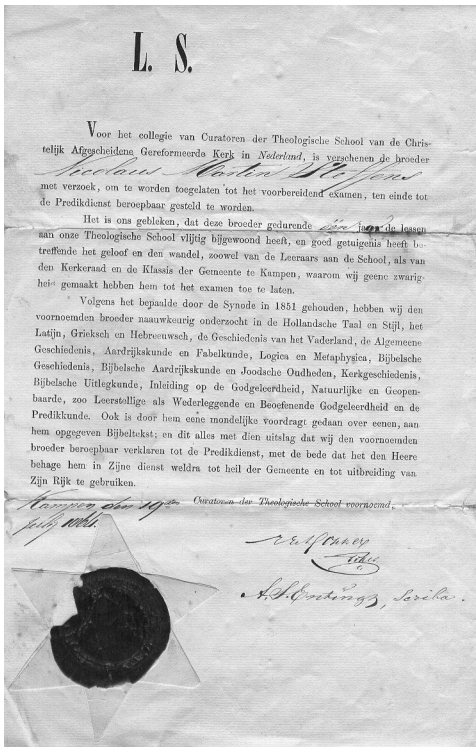 L. S.
Voor het collegie van Curatoren der Theologische School van de Chris-
telijk Afgescheidene Gereformeerde Kerk in Nederland, is verschenen de broeder
Nicolaus Martin Steffens
met verzoek, om te worden toegelaten tot het voorbereidend examen, ten einde tot
de Predikdienst beroepbaar gesteld te worden.
Het is ons gebleken, dat deze broeder gedurende één jaar de lessen
aan onze Theologische School vlijtig bijgewoond heeft, en goed getuigenis heeft be-
treffende het geloof en den wandel, zoowel van de Leeraars aan de School, als van
den Kerkeraad en de Klassis der Gemeente te Kampen, waarom wij geene zwarig-
heid gemaakt hebben hem tot het examen toe te laten.
Volgens het bepaalde door de Synode in 1851 gehouden, hebben wij den
voornoemden broeder naauwkeurig onderzocht in de Hollandsche Taal en Stijl, het
Latijn, Grieksch en Hebreeuwsch, de Geschiedenis van het Vaderland, de Algemeene
Geschiedenis, Aardrijkskunde en Fabelkunde, Logica en Metaphysica, Bijbelsche
Geschiedenis, Bijbelsche Aardrijkskunde en Joodsche Oudheden, Kerkgeschiedenis,
Bijbelsche Uitlegkunde, Inleiding op de Godgeleerdheid, Natuurlijke en Geopen-
baarde, zoo Leerstellige als Wederleggende en Beoefenende Godgeleerdheid en de
Predikkunde. Ook is door hem eene mondelijke voordragt gedaan over eenen, aan
hem opgegeven Bijbeltekst; en dit alles met dien uitslag dat wij den voornoemden
broeder beroepbaar verklaren tot de Predikdienst, met de bede dat het den Heere
behage hem in Zijne dienst weldra tot heil der Gemeente en tot uitbreiding van
Zijn Rijk te gebruiken.
Kampen den 19den Curatoren der Theologische School voornoemd,
July
A. S. Entingh, Scriba.